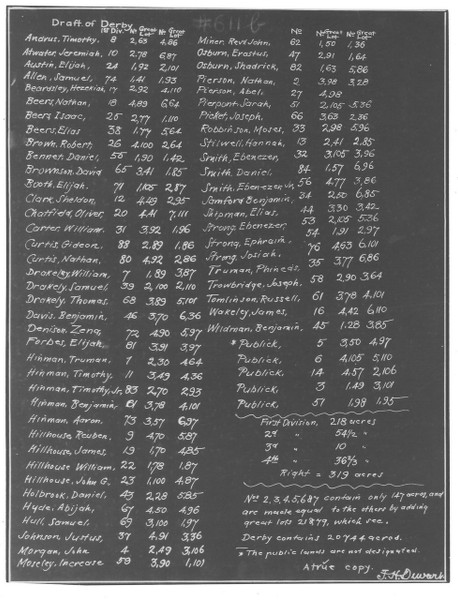 Draft of Derby
#611 G
1st Div. No Great Lot No Great Lot
Andrus, Timothy, 8 2,63 4,86
Atwater, Jeremiah, 10 2,78 6,87
Austin, Elijah, 24 1,92 2,101
Allen, Samuel, 74 1,41 1,93
Beardsley, Hezekiah, 17 2,92 4,110
Beers, Nathan, 18 4,89 6,64
Beers, Isaac, 25 2,77 1,110
Beers, Elias 38 1,77 5,64
Brown, Robert, 26 4,100 2,64
Bennet, Daniel, 55 1,90 1,42
Brownson, David 65 3,41 1,85
Booth, Elijah, 71 1,105 2,87
Clark, Sheldon, 12 4,49 2,95
Chatfield, Oliver, 20 4,41 7,111
Carter, William, 31 3,92 1,96
Curtis, Gideon, 88 2,89 1,86
Curtis, Nathan, 80 4,92 2,86
Drakeley, William, 7 1,89 3,87
Drakely, Samuel, 39 2,100 2,110
Drakely, Thomas, 68 3,89 5,101
Davis, Benjamin, 46 3,70 6,36
Denison, Zena, 72 4,90 5,97
Forbes, Elijah, 81 3,91 3,97
Hinman, Truman, 1 2,30 4,64
Hinman, Timothy, 11 3,49 4,36
Hinman, Timothy, Jr, 83 2,70 2,93
Hinman, Benjamin, 61 3,78 4,101
Hinman, Aaron, 73 3,57 6,97
Hillhouse, Reuben, 9 4,70 5,87
Hillhouse, James, 19 1,70 4,85
Hillhouse William, 22 1,78 1,87
Hillhouse, John G. 23 1,100 4,87
Holbrook, Daniel, 43 2,28 5,85
Hyde, Abijah, 67 4,50 4,96
Hull, Samuel, 69 3,100 1,97
Johnson Justus, 37 4,91 3,36
Morgan, John 4 2,49 3,106
Moseley, Increase 59 3,90 1,101
No No Great Lot No Great Lot
Miner, Revd John, 62 1,50 1,36
Osburn, Erastus, 47 2,91 1,64
Osburn, Shadrick, 82 1,63 5,86
Pierson, Nathan, 2 3,98 3,28
Pierson, Abel, 27 4,98
Pierpont, Sarah, 51 2,105 5,36
Picket, Joseph, 66 3,63 2,36
Robbinson, Moses, 33 2,98 5,96
Stilwell, Hannah, 13 2,41 2,85
Smith, Ebenezer, 32 3,105 3,96
Smith, Daniel, 84 1,57 6,96
Smith, Ebenezer, Jr, 56 4,77 3,86
Samford Benjamin, 34 2,50 6,85
Shipman, Elias, 44 3,30 3,42
Strong, Ebenezer, 53 2,105 5,36
54 1,91 2,97
Strong, Ephraim, 76 4,63 6,101
Strong, Josiah, 35 3,77 6,86
Truman, Phineas,
Trowbridge, Joseph, 58 2,90 3,64
Tomlinson, Russell, 61 3,78 4,101
Wakeley, James, 16 4,42 6,110
Wildman, Benjamin, 45 1,28 3,85
* Publick, 5 3,50 4,97
Publick, 6 4,105 5,110
Publick, 14 4,57 2,106
Publick, 3 1,49 3,101
Publick, 57 1,98 1,95
First Division, 218 acres
2d " 54½ "
3d " 10 "
4th " 36⅔ "
Right = 319 acres
Nos 2,3,4,5,6&7 contain only 147 acres, and
are made equal to the others by adding
great lots 21&79, which see.
Derby contains 20744 acres.
* The public lands are not designated.
A true copy.
F. H. Dewart